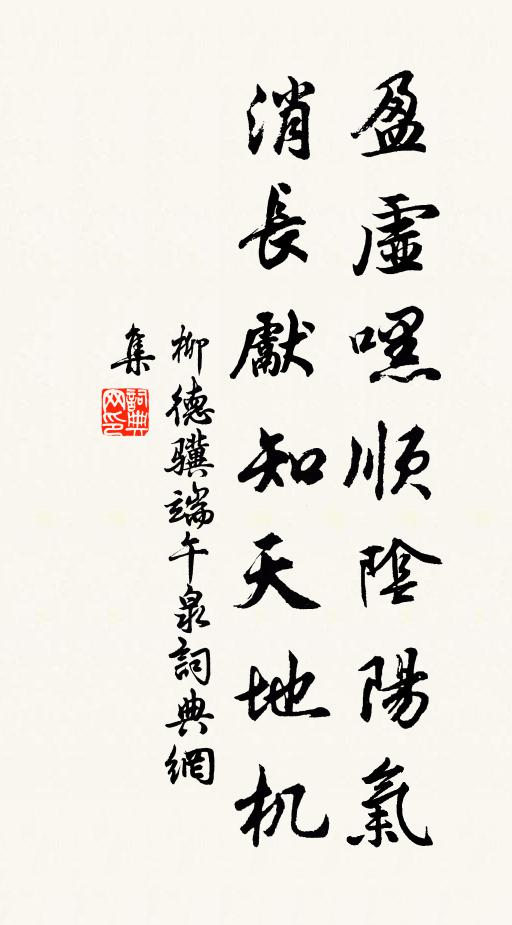 盈虛嘿順陰陽氣
消長獻知天地机
柳德骥端午泉詞典網
集
詞典
网印